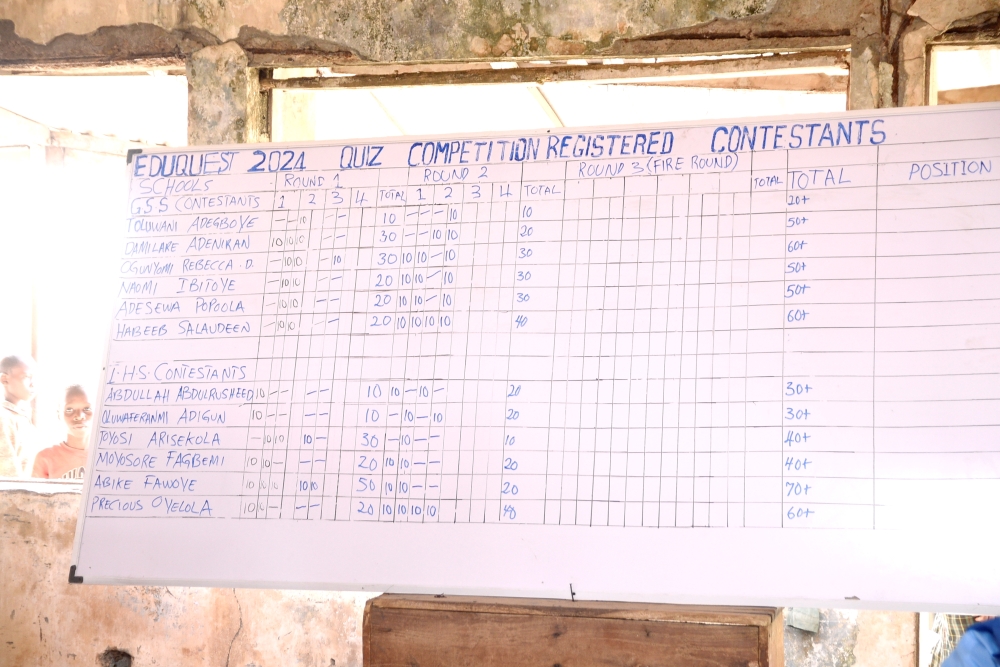 EDUQUEST 2024 QUIZ COMPETITION REGISTERED CONTESTANTS
SCHOOLS ROUND 1 ROUND 2 ROUND 3 (FIRE ROUND) TOTAL TOTAL POSITION
GSS CONTESTANTS 1 2 3 4 TOTAL 1 2 3 4 TOTAL 20+
TOLUWANI ADEGBOYE - - 10 - - 10 - - - 10 10 50+
DAMILARE ADENIRAN 10 10 10 - - 30 - - 10 10 20 60+
OGUNYOMI REBECCA .D. - 10 10 - 10 30 10 10 - 10 30 50+
NAOMI IBITOYE - 10 10 - - 20 10 10 - 10 30 50+
ADESEWA POPOOLA - 10 10 - - 20 10 10 - 10 30 60+
HABEEB SALAUDEEN - 10 10 - - 20 10 10 10 10 40
I.H.S. CONTESTANTS
ABDULLAH ABDULRUSHEED 10 - - - - 10 10 - 10 - 20 30+
OLUWAFERANMI ADIGUN 10 - - - - 10 - 10 - 10 20 30+
TOYOSI ARISEKOLA - 10 10 10 - 30 - 10 - - 10 40+
MOYOSORE FAGBEMI 10 10 - - - 20 10 10 - - 20 40+
ABIKE FAWOYE 10 10 10 10 10 50 10 10 - - 20 70+
PRECIOUS OYELOLA 10 - - - 20 10 10 10 10 40 60+